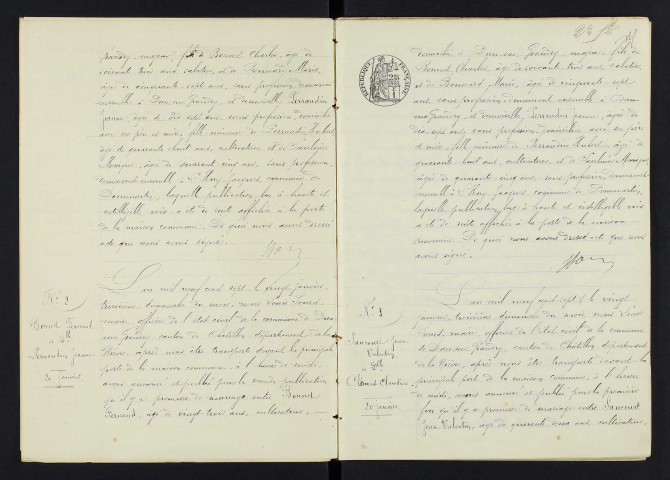 Grandry, majeur, fils de Bonnet Charles, âgé de
soixante trois ans sabotier, et de Bonnard Marie,
âgée de cinquante sept ans, sans profession, demeurant
ensemble à Dun sur Grandry, et demoiselle Perraudin
Jeanne, âgée de dix sept ans, sans profession, domiciliée
avec ses père et mère, fille mineure de Perraudin Hubert,
âgé de quarante huit ans, cultivateur, et de
âgée de quarante cinq ans, sans profession,
demeurant ensemble à Jacques, commune de
Dommartin, laquelle publication, lue à haute et
intelligible voix a été de suite affichée à la porte
de la maison commune. De quoi nous avons dressé
acte que nous avons signé.
N° 2
Bonnet Fernand
et
Perraudin Jeanne
20 janvier
L'an mil neuf cent sept, le vingt janvier,
troisième dimanche du mois, nous
maire, officier de l'état civil de la commune de Dun
sur Grandry, canton de Châtillon, département de la
Nièvre, après nous être transporté devant la principale
porte de la maison commune, à l'heure de midi,
avons annoncé et publié pour la seconde publication
qu'il y a promesse de mariage entre Bonnet
Fernand, âgé de vingt trois ans, cultivateur,
RÉPUBLIQUE FRANÇAISE
domicilié à Dun sur Grandry, majeur, fils de
Bonnet Charles, âgé de soixante trois ans sabotier,
et de Bonnard Marie, âgée de cinquante sept
ans, sans profession demeurant ensemble à Dun
sur Grandry, et demoiselle Perraudin Jeanne, âgée de
dix sept ans, sans profession, domiciliée avec ses père
et mère, fille mineure de Perraudin Hubert, âgé de
quarante huit ans, cultivateur, et de
âgée de quarante cinq ans, sans profession, demeurant
ensemble à Jacques, commune de Dommartin,
laquelle publication, lue à haute et intelligible voix
a été de suite affichée à la porte de la maison
commune. De quoi nous avons dressé acte que nous
avons signé.
N° 3
Jean
Valentin
et
Claudine
20 janvier
L'an mil neuf cent sept, le vingt
janvier, troisième dimanche du mois, nous
maire, officier de l'état civil de la commune
de Dun sur Grandry, canton de Châtillon, département
de la Nièvre, après nous être transporté devant la
principale porte de la maison commune, à l'heure
de midi, avons annoncé et publié pour la première
fois qu'il y a promesse de mariage entre
Jean Valentin, âgé de quarante deux ans, cultivateur,